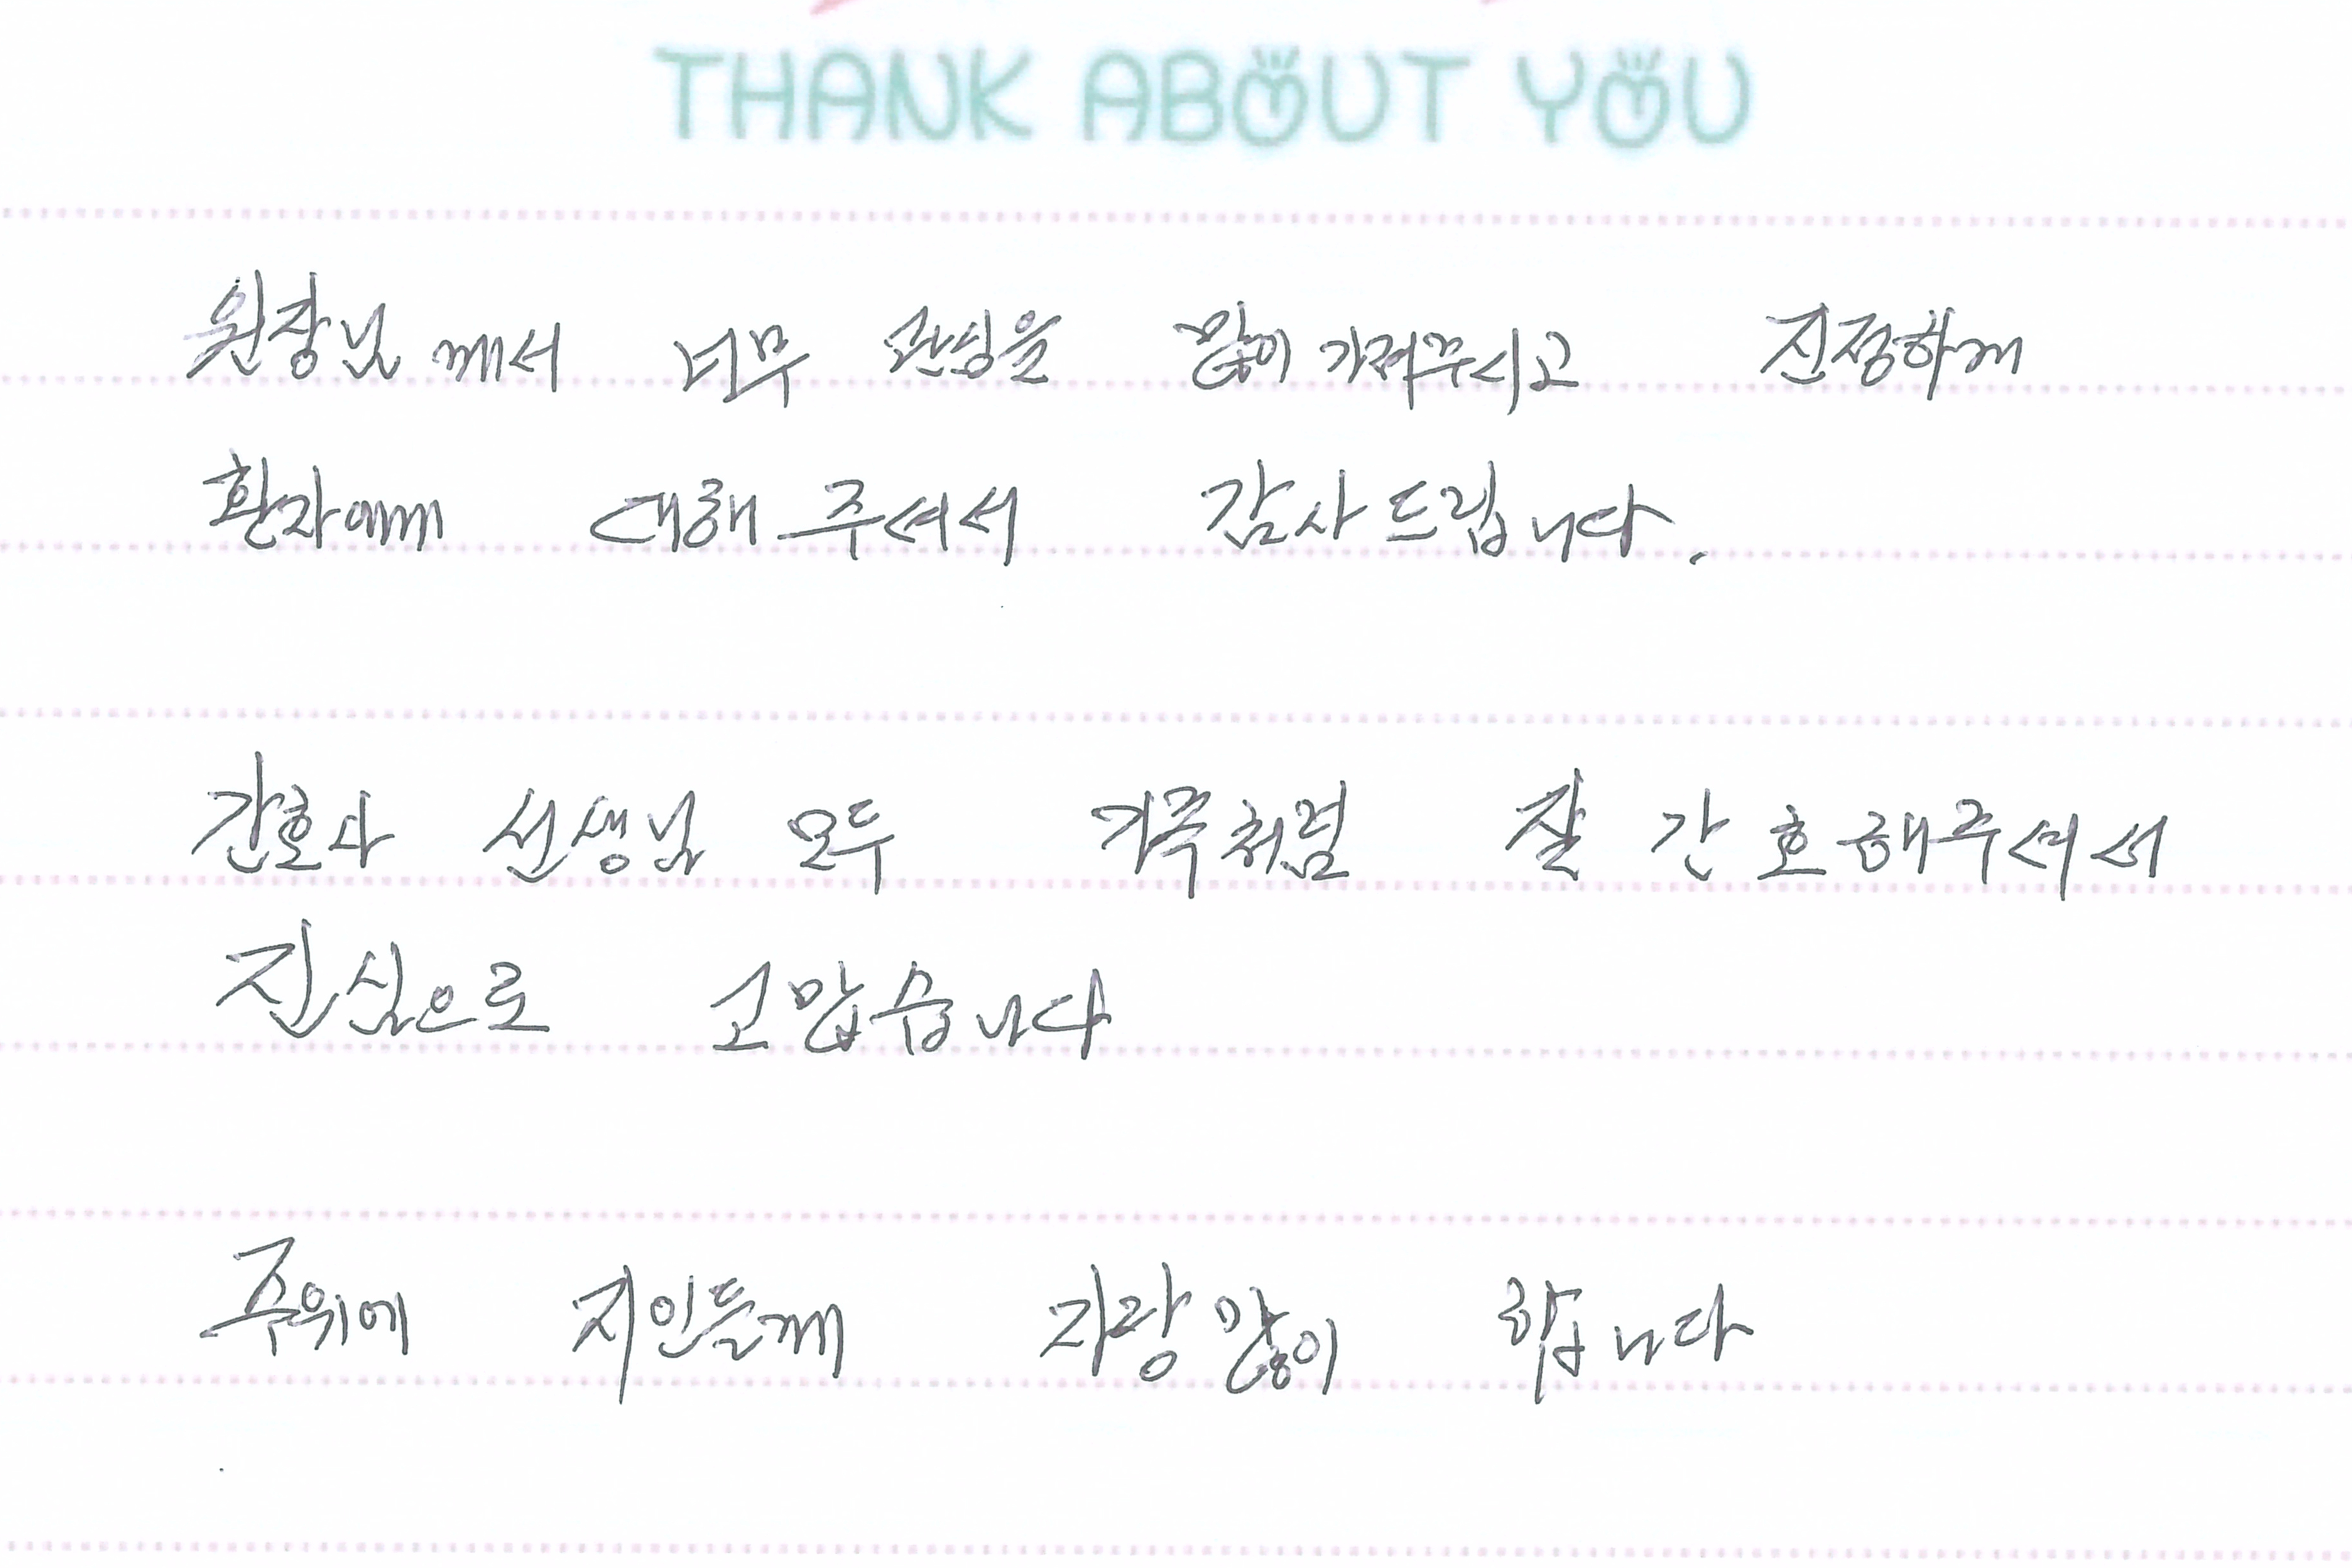 THANK ABOUT YOU
원장님께서 너무 관심을 많이 가져주시고 진정하게
환자에께 대해 주셔서 감사드립니다.
간호사 선생님 모두 가족처럼 잘 간호해주셔서
진심으로 고맙습니다
주위에 지인들께 자랑 많이 합니다